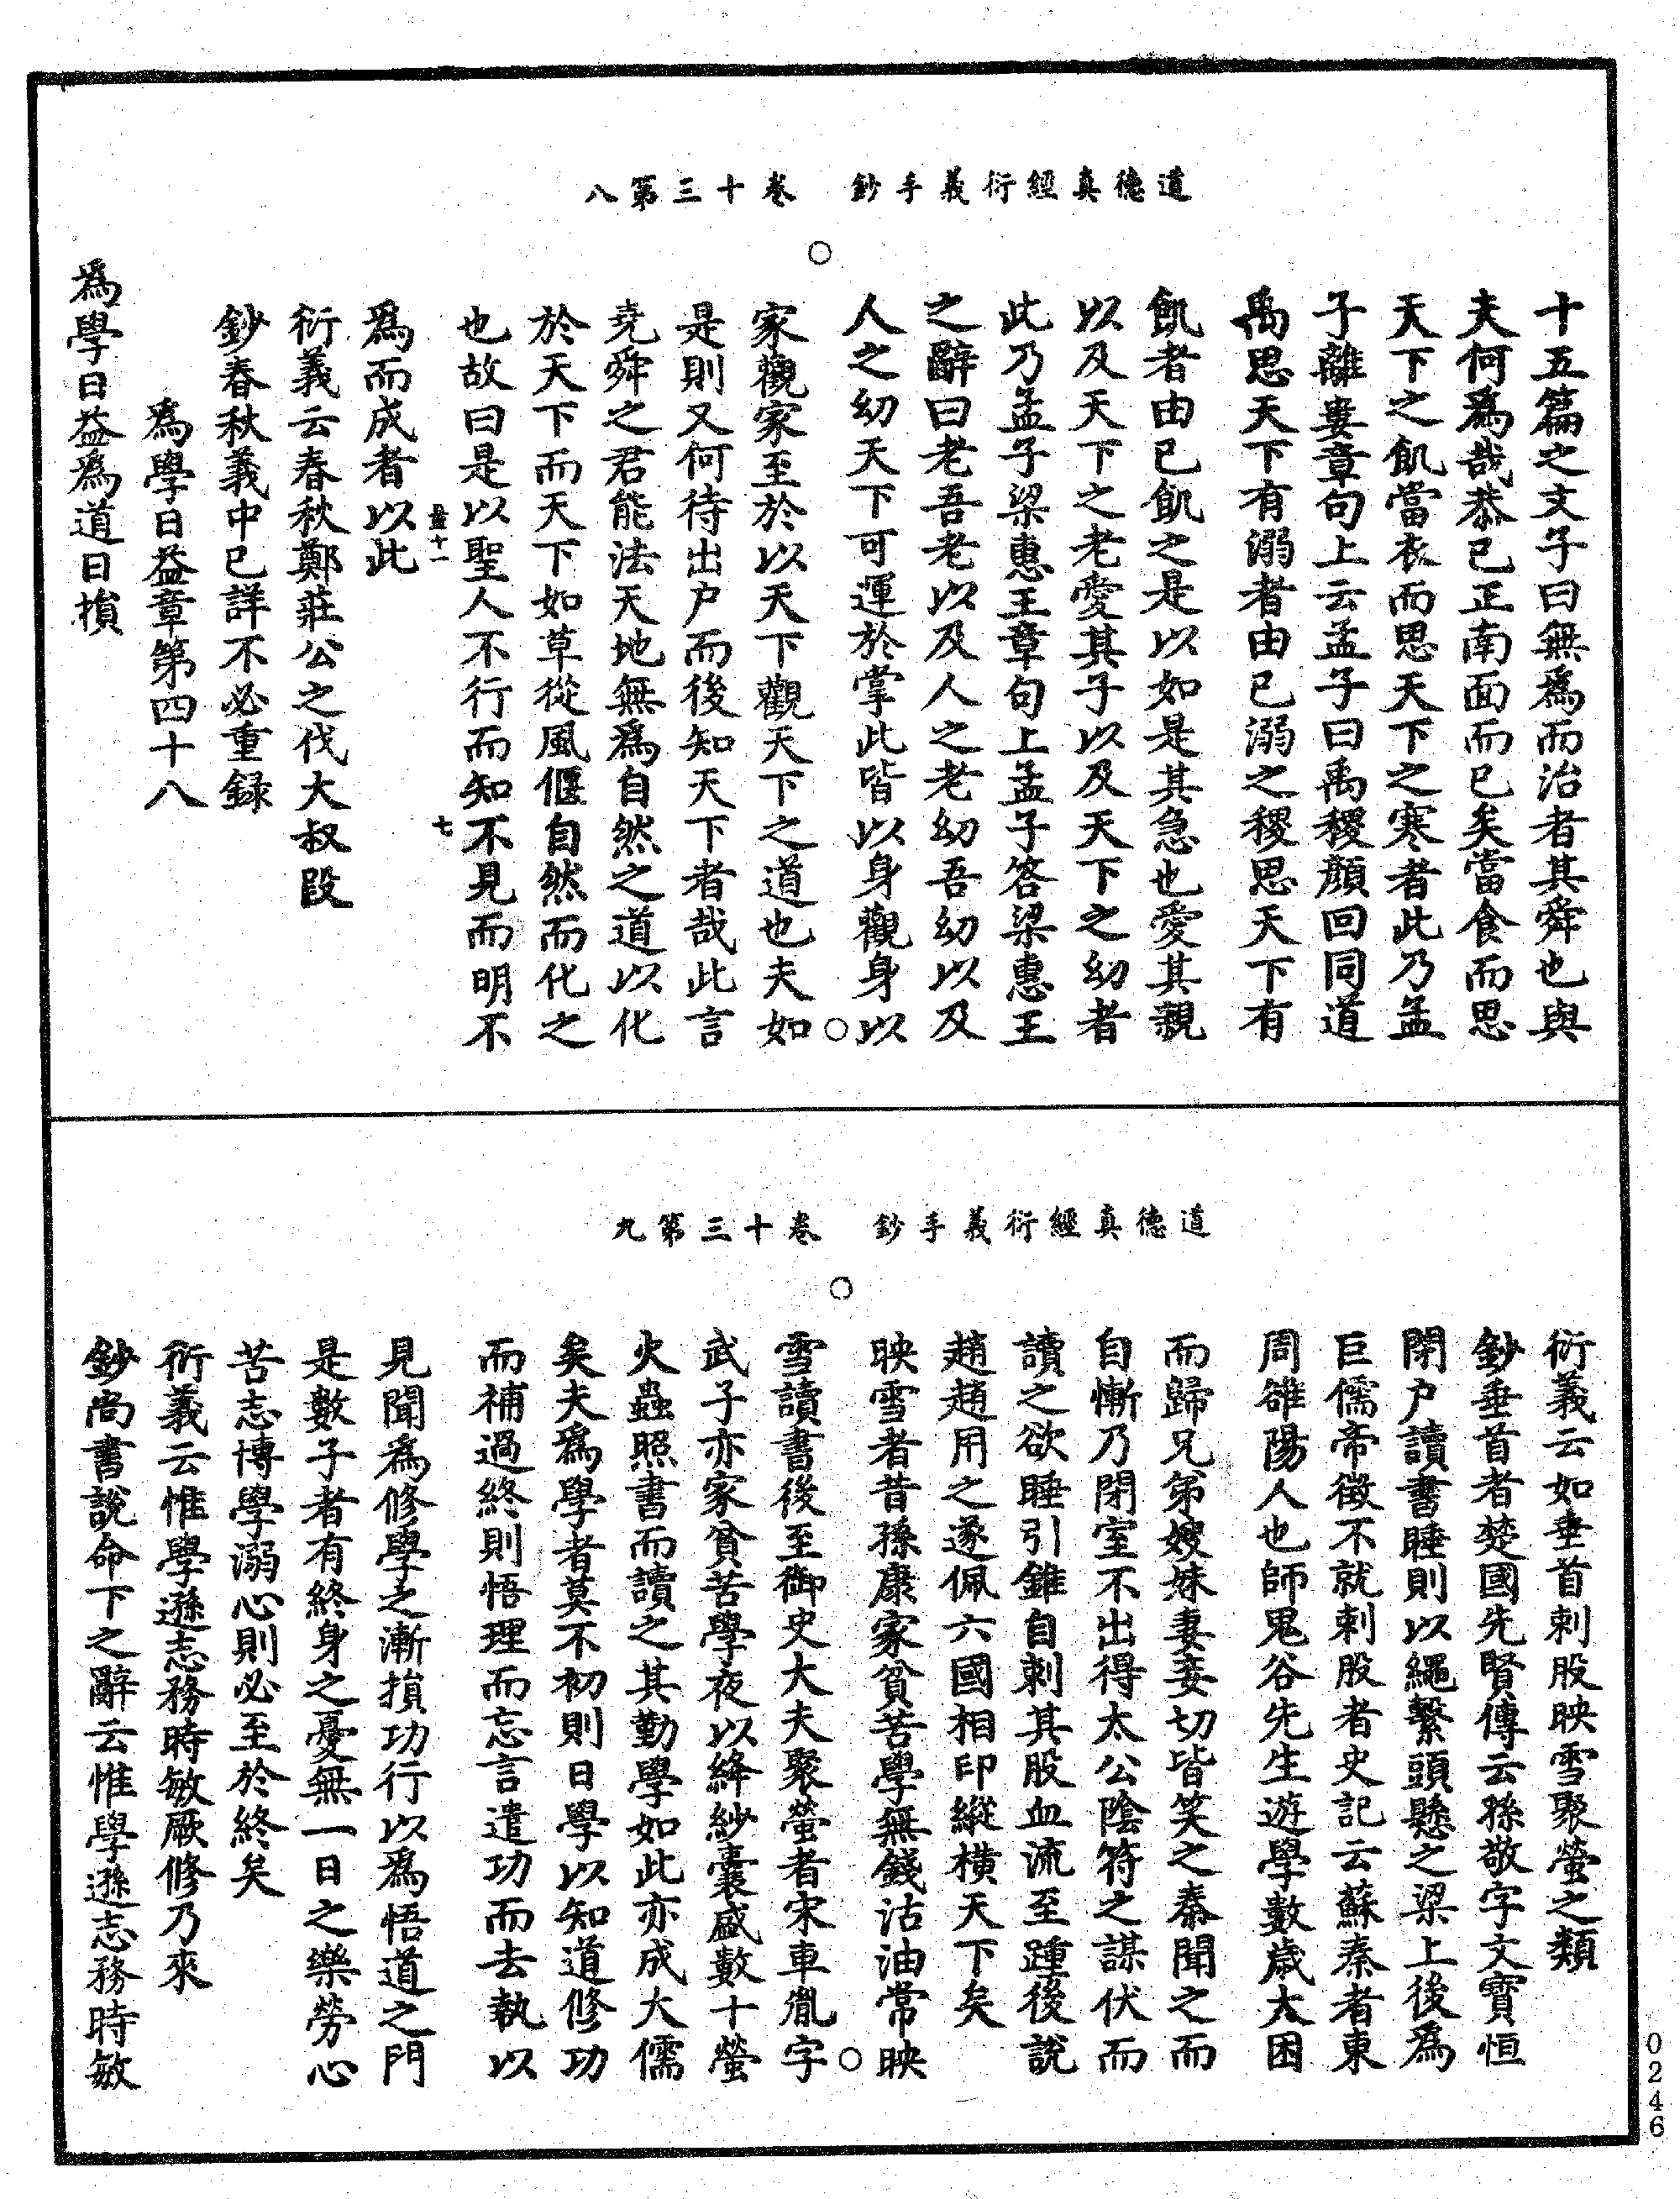 道德真經衍義手鈔　卷十三第八
十五篇之文子曰無爲而治者其舜也與
夫何爲哉恭己正南面而已矣當食而思
天下之飢當衣而思天下之寒者此乃孟
子離婁章句上云孟子曰禹稷顔回同道
禹思天下有溺者由已溺之稷思天下有
飢者由已飢之是以如是其急也愛其親
以及天下之老愛其子以及天下之幼者
此乃孟子梁惠王章句上孟子答梁惠王
之辭曰老吾老以及人之老幼吾幼以及
人之幼天下可運於掌此皆以身觀身以
家觀家至於以天下觀天下之道也夫如
是則又何待出户而後知天下者哉此言
堯舜之君能法天地無爲自然之道以化
於天下而天下如草從風偃自然而化之
也故曰是以聖人不行而知不見而明不
十一　七
爲而成者以此
衍義云春秋鄭莊公之伐大叔段
鈔春秋義中已詳不必重録
爲學日益章第四十八
爲學日益爲道日損
道德真經衍義手鈔　卷十三第九
衍義云如垂首刺股映雪聚螢之類
鈔垂首者楚國先賢傳云孫敬字文寶恒
閉户讀書睡則以繩繫頭懸之梁上後爲
巨儒帝徵不就刺股者史記云蘇秦者東
周雒陽人也師鬼谷先生遊學數歲大困
而歸兄弟嫂妹妻妾切皆笑之秦聞之而
自慚乃閉室不出得太公陰符之謀伏而
讀之欲睡引錐自刺其股血流至踵後說
趙趙用之遂佩六國相印縱橫天下矣
映雪者昔孫康家貧苦學無錢沽油常映
雪讀書後至御史大夫聚螢者宋車胤字
武子亦家貧苦學夜以絳紗囊盛數十螢
火蟲照書而讀之其勤學如此亦成大儒
矣夫爲學者莫不初則日學以知道修功
而補過終則悟理而忘言遣功而去執以
見聞爲修學之漸損功行以爲悟道之門
是數子者有終身之憂無一日之樂勞心
苦志博學溺心則必至於終矣
衍義云惟學遜志務時敏厥修乃來
鈔尚書說命下之辭云惟學遜志務時敏
0246